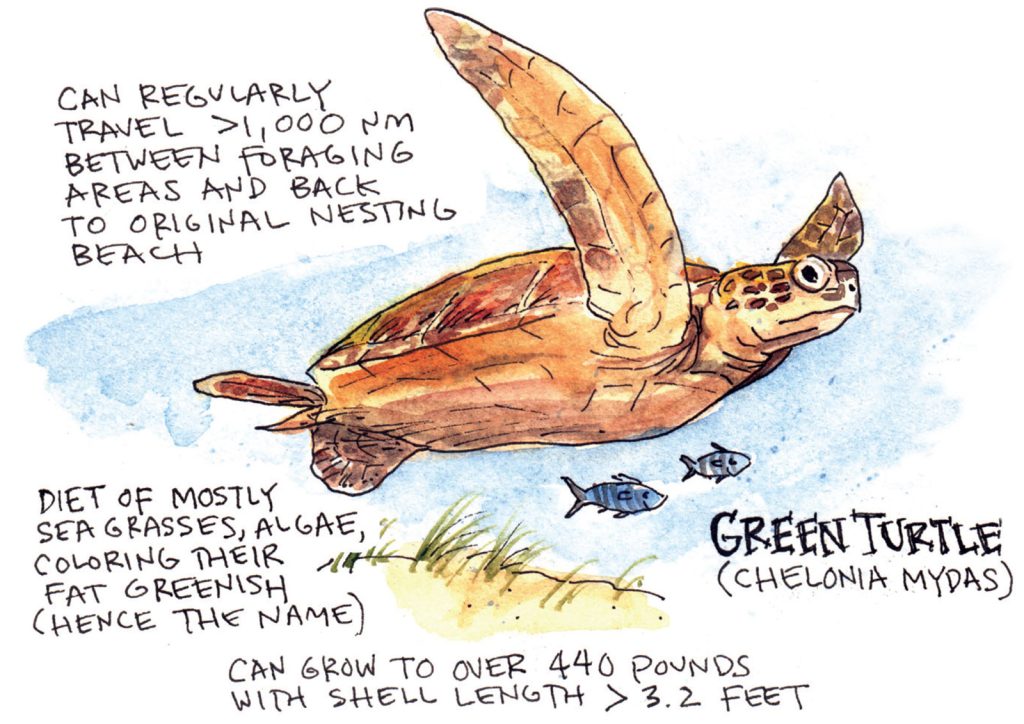 CAN REGULARLY
TRAVEL >1,000 NM
BETWEEN FORAGING
AREAS AND BACK
TO ORIGINAL NESTING
BEACH
DIET OF MOSTLY
SEA GRASSES, ALGAE,
COLORING THEIR
FAT GREENISH
(HENCE THE NAME)
GREEN TURTLE
(CHELONIA MYDAS)
CAN GROW TO OVER 440 POUNDS
WITH SHELL LENGTH > 3.2 FEET